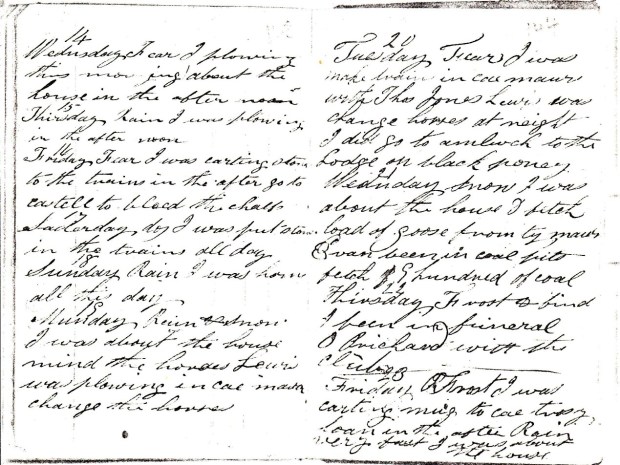 14
Wednsday Fear I plowing
this mor ing about the
house in the after noon
15
Thirsday Rain I was plowing
in the after noon
16
Friday Fear I was carting stone
to the trains in the after go to
castell to bleed the chalf
17
Saturday dry I was put stone
in the trains all day
18
Sunday Rain I was hom
all this day
19
Munday Rain & snow
I was about the house
mind the horses Lewis
was plowing in cae mawr
change the horses
20
Tuesday Fear I was
make train in cae mawr
with Thos Jones Lewis was
change horses at neight
I did go to amlwch to the
Lodge on black poney
21
Wednday snow I was
about the house I fetch
load of goose from ty mawr
Evan been in coal pits
fetch 9 hundred of coal
22
Thirsday Frost & bind
I been in funeral
O Prichard with the
club
23
Friday Frost I was
carting mug to cae
in the after Rain
very fast I was about
the house